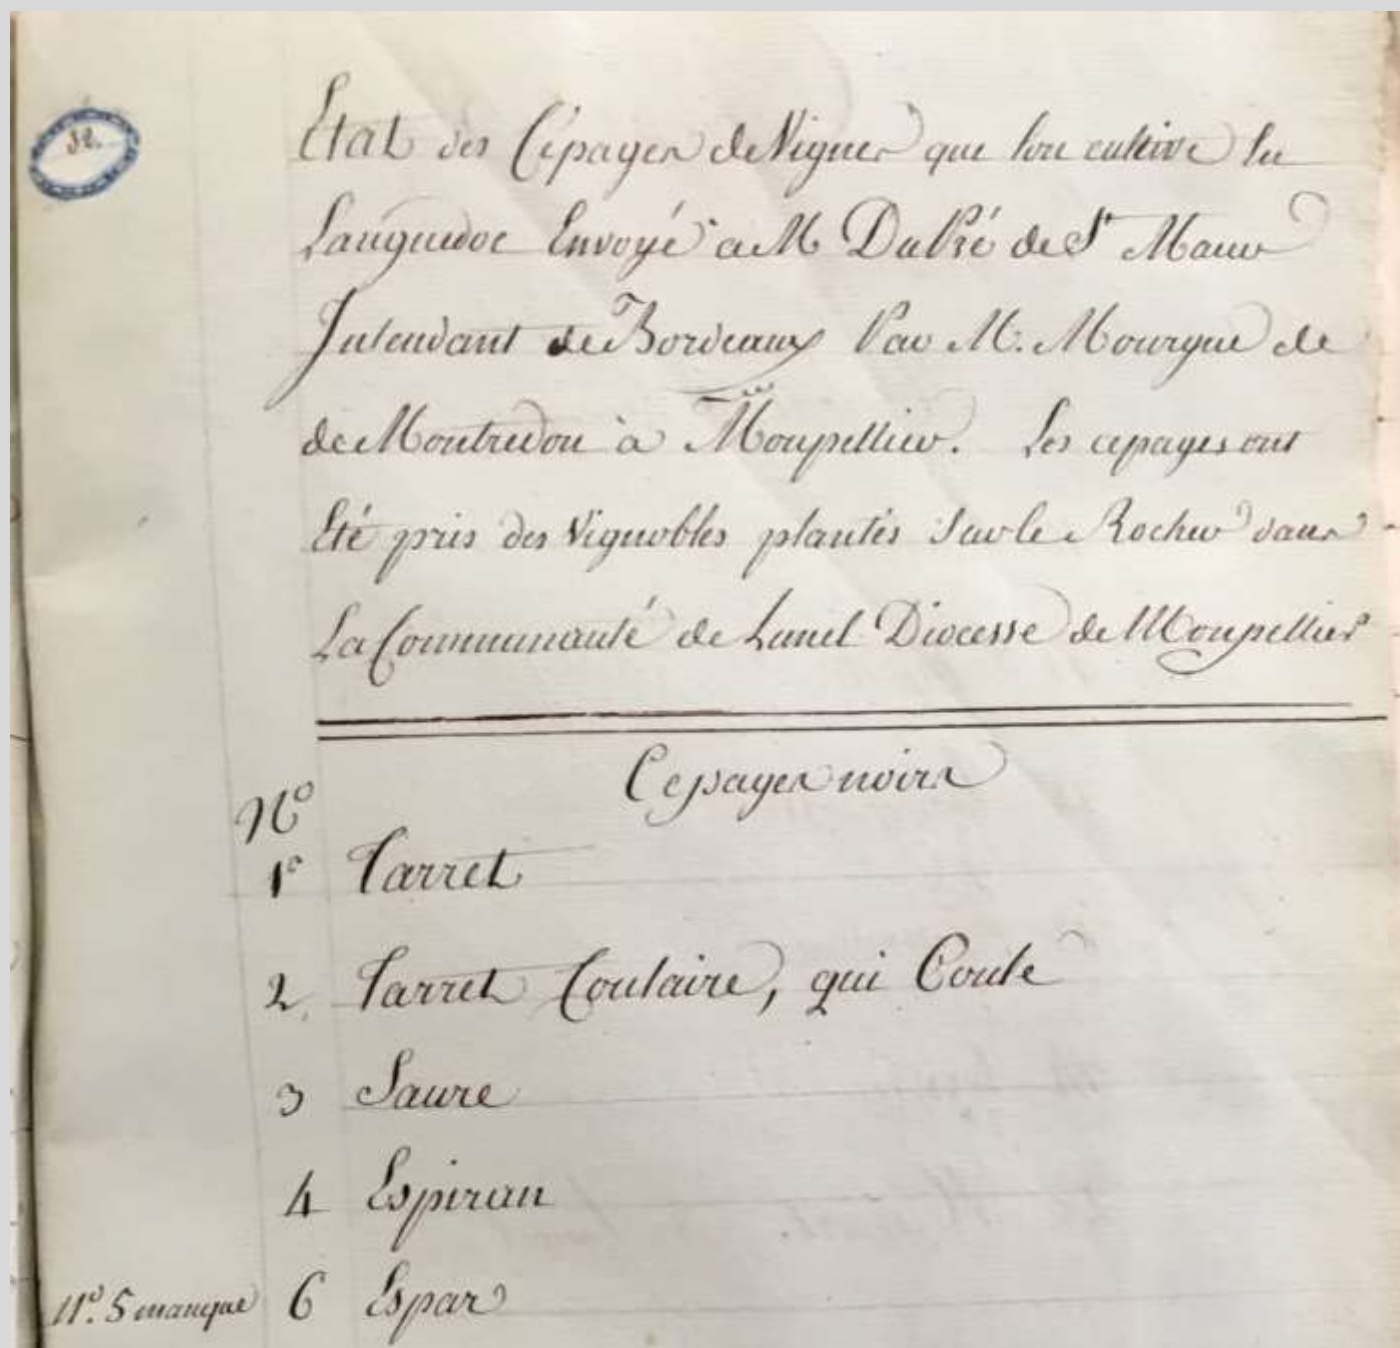 32.
Etat des Cépages de Vignes que l'on cultive En
Languedoc Envoyé a M DuPré de St Maur
Intendant de Bordeaux Par M. Mourgue de
de Montredon à Montpellier. Les cepages ont
Eté pris des Vignobles plantés sur le Rocher dans
La Communauté de Lunel Diocesse de Monpellier
Cepages noirs
No
1o Tarret
2. Tarret Coulaire, qui Coule
3 Saure
4 Espiran
No. 5 manque 6 Espar